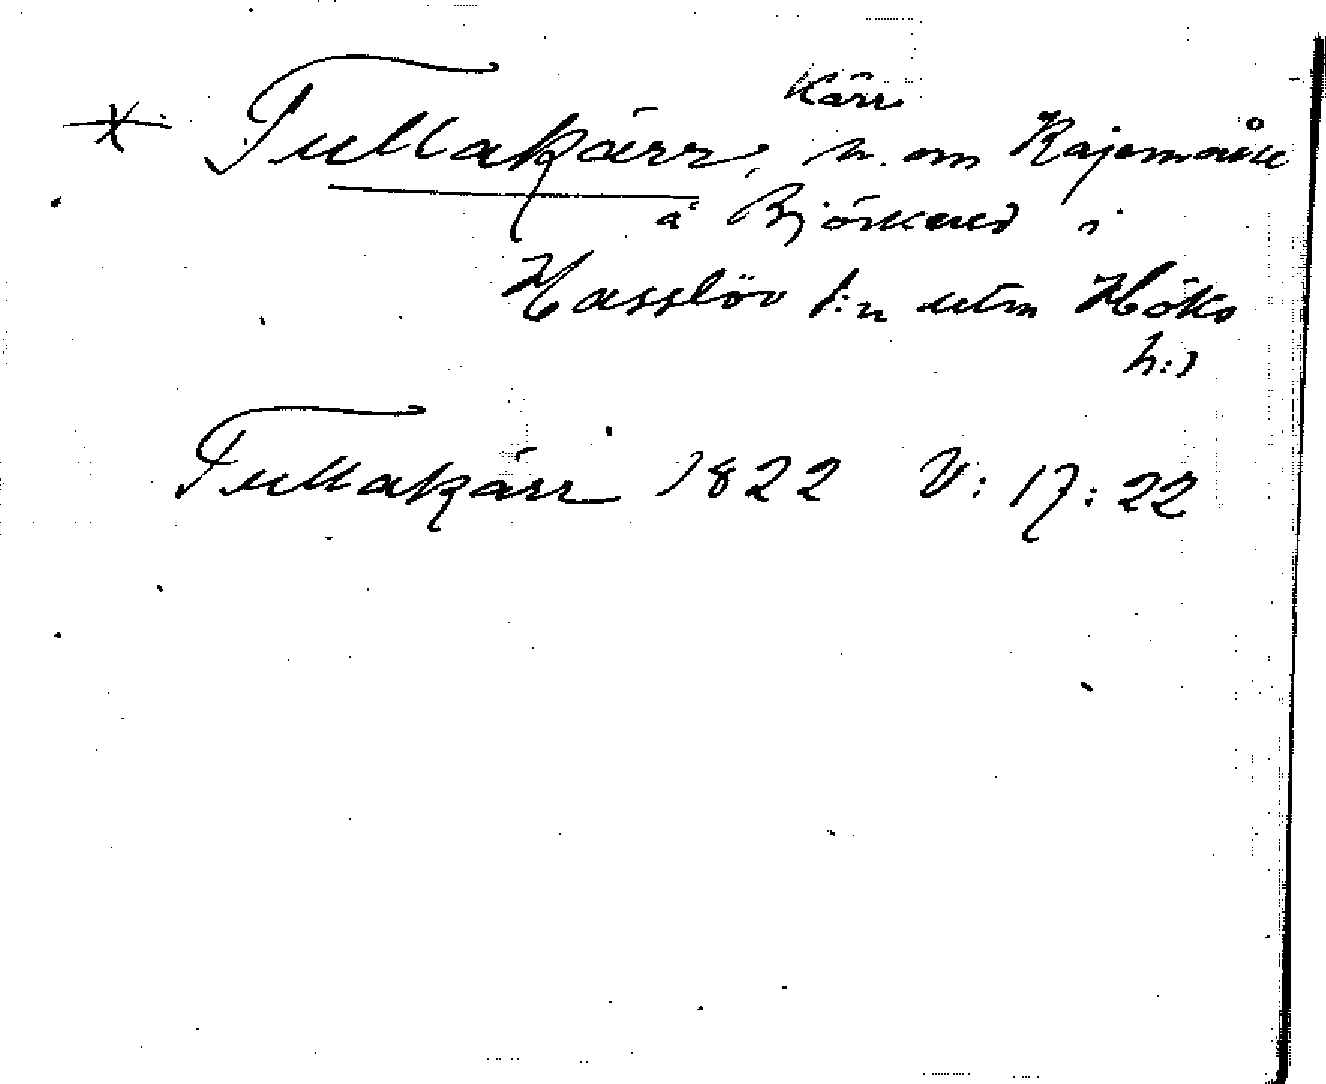 Kärr
Tullakärr, n. om
å Björkered i
Hasslöv s:n utm Höks
h:d
Tullakärr 1822 V: 17: 22